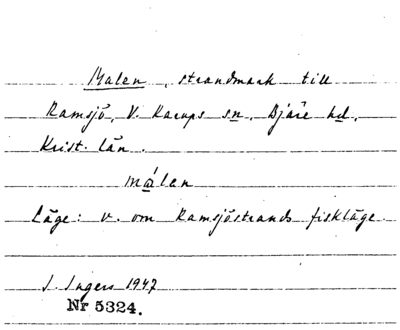 Malen, strandmark till
Ramsjö, V. Karups sn, Bjäre hd.
Krist. län.
málen
Läge: v. om Ramsjöstrands fiskläge.
I. Ingers 1947
Nr 5324.